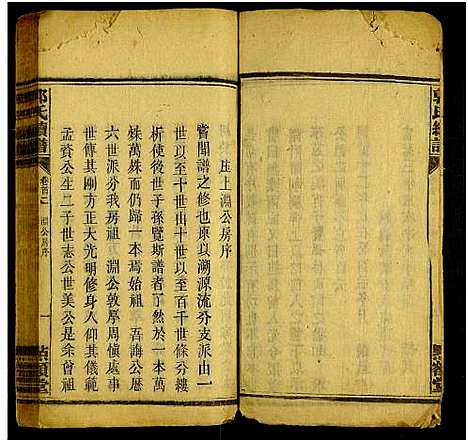 郭氏續譜
點額堂
压上淵公房序
嘗聞譜之修也原以溯源流分支派由一
世以至十世由十世以至百千世條分縷
析使後世子孫覽斯譜者了然於一本萬
萬殊而仍歸一本焉始祖 吾誨公厯
六世派分我房祖 淵公敦厚周慎處事
世傳其剛方正大光明修身人仰其儀範
孟資公生二子世志公世美公是朱曾祖
郭氏續譜
卷首二
淵公房序
一
點額堂